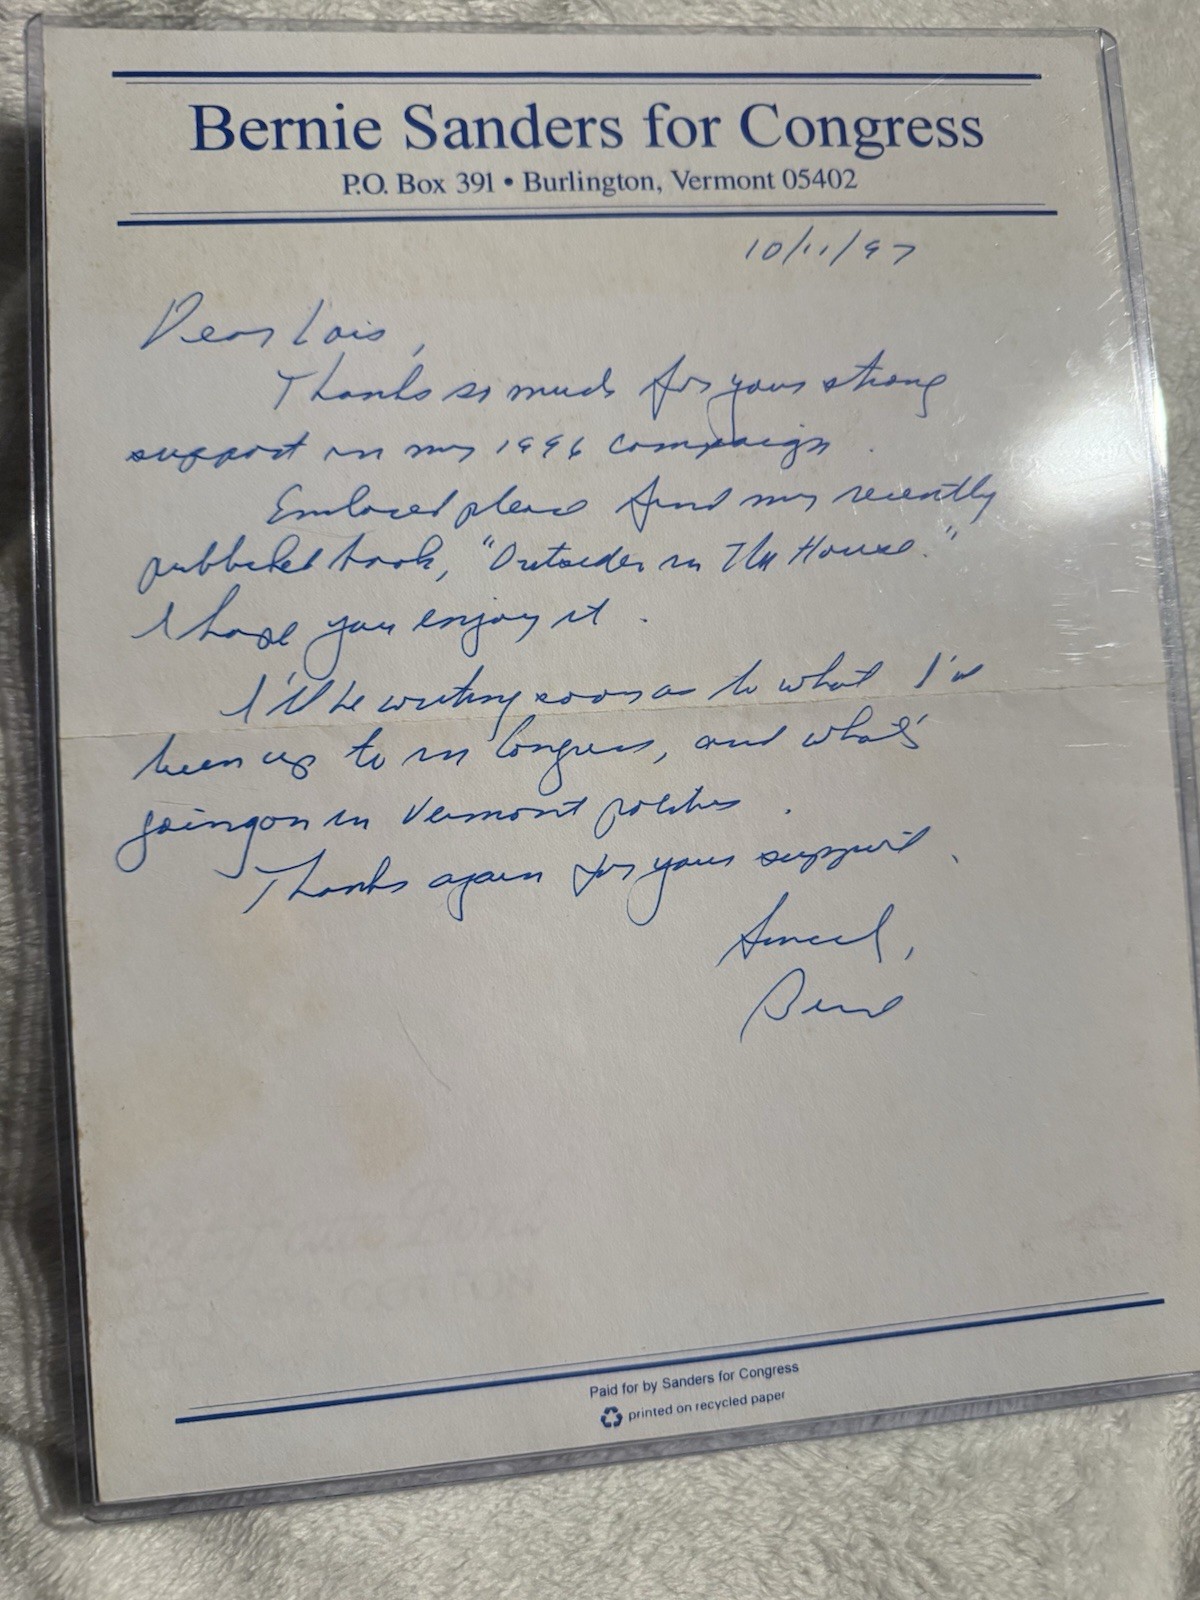 Bernie Sanders for Congress
P.O. Box 391 • Burlington, Vermont 05402
10/11/97
Dear Lois,
Thanks so much for your strong
support in my 1996 campaign.
Enclosed please find my recently
published book, "Outsider in The House."
I hope you enjoy it.
I'll be writing soon as to what I've
been up to in Congress, and what's
going on in Vermont politics.
Thanks again for your support.
Sincerely,
Bernie
COTTON
Paid for by Sanders for Congress
printed on recycled paper